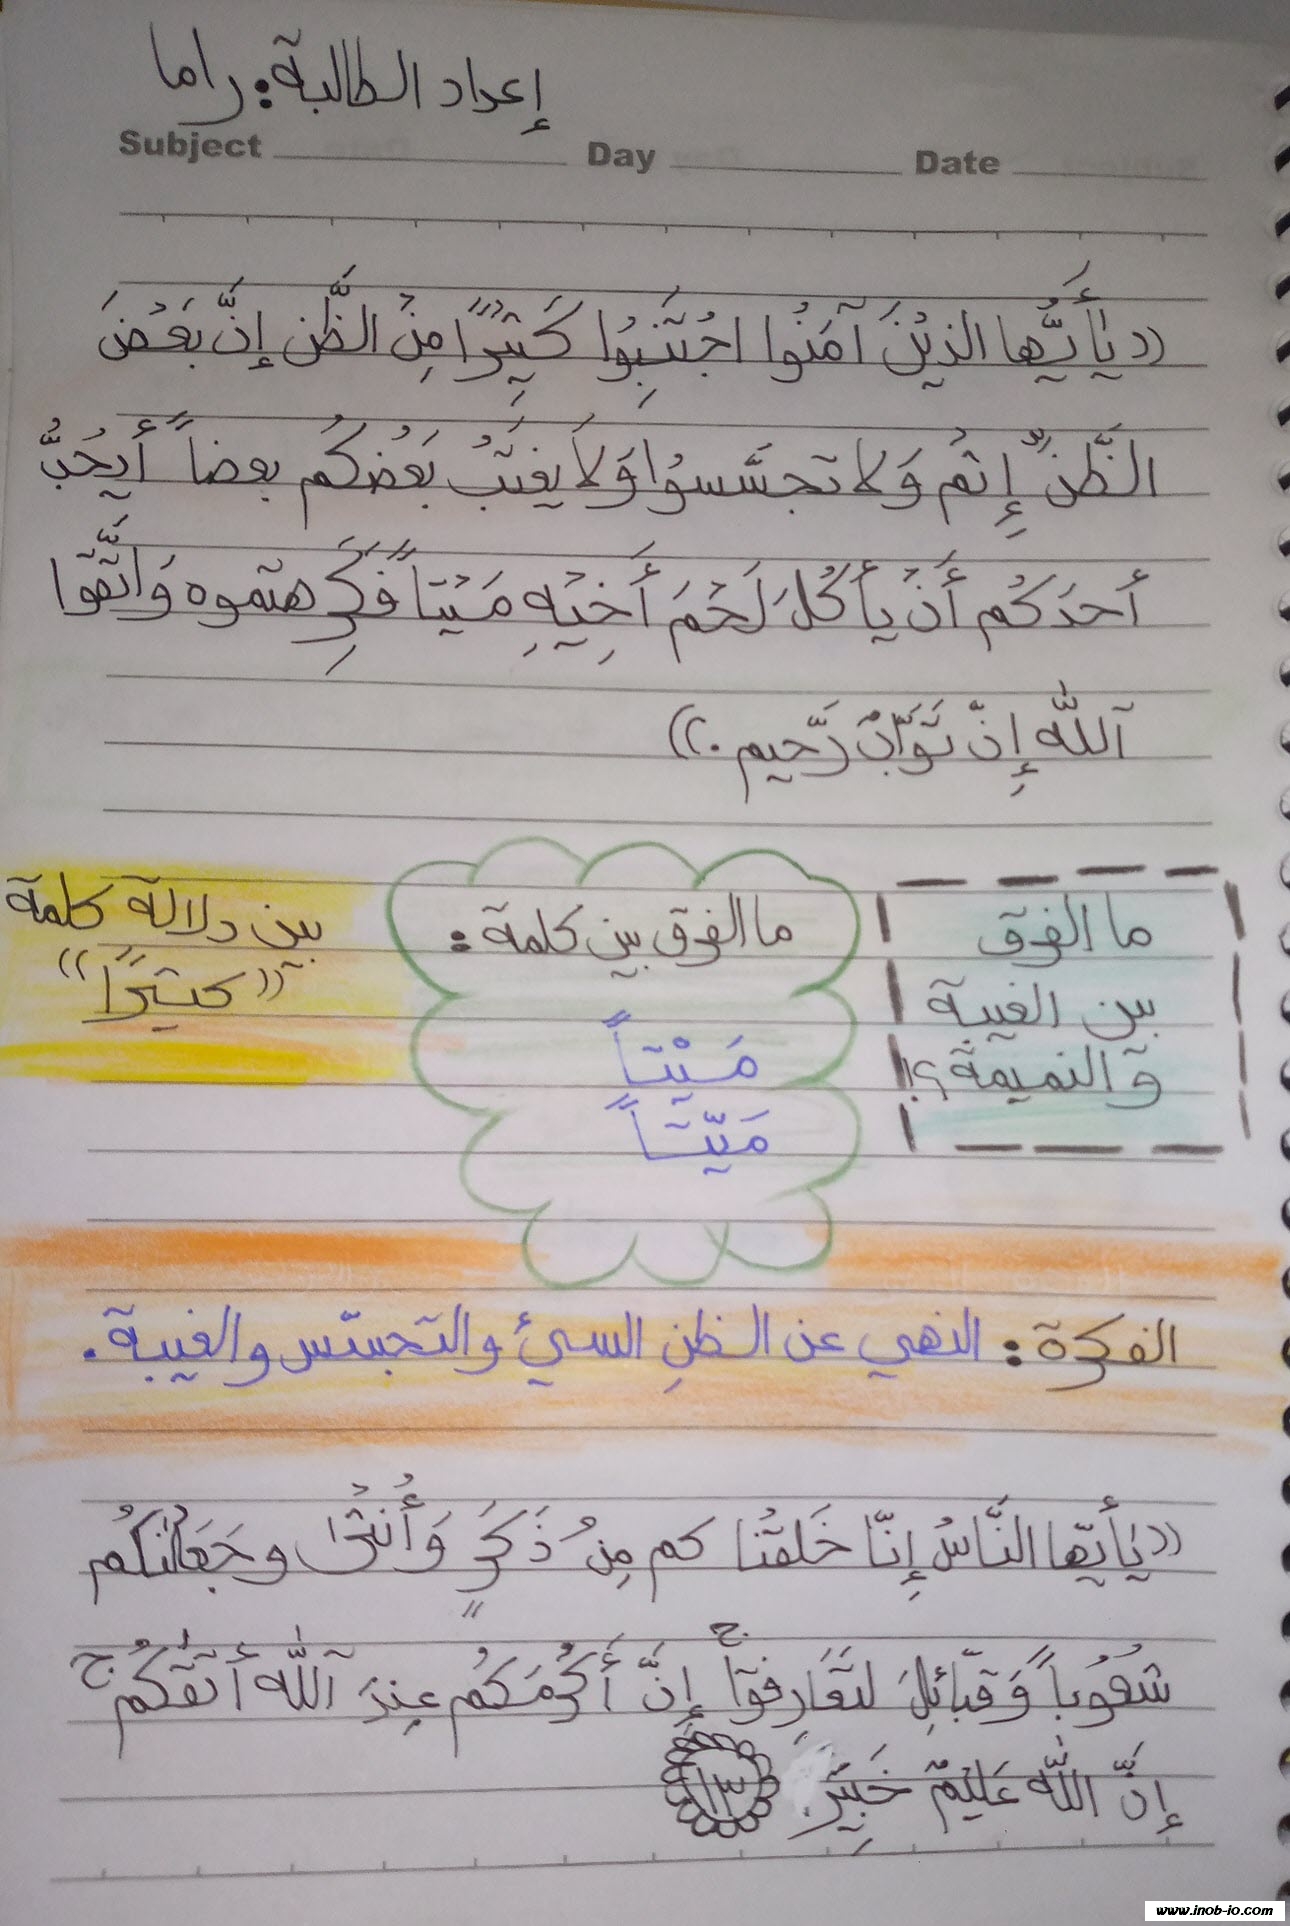 إعداد الطالبة: راما
Subject Day Date
((يَٰأَيُّها الذيْنَ آمَنُوا اجْتَنِبُوا كَثِيْرًا مِنْ الظَّن إنَّ بَعْضَ
الظَّنِّ إِثمُ وَلا تجسَّسوُا وَلاَ يغتَبْ بَعْضكُم بعضاً أَيحُبُّ
أَحدَكُم أَنْ يأْكُلَ لَحْمَ أَخِيْهِ مَيْتاً فَكَرِهتموه وَاتَّقوا
ٱللَّه إِنّ تَوَّابٌ رَّحيم.))
ما الفرق
بين الغيبة
و النميمة؟!
ما الفرق بين كلمة:
مَيْتاً
مَيّتاً
بين دلالة كلمة
((كثيرًا))
الفكرة: النهي عن الظنِ السيئ والتجسّس والغيبة.
((يَٰأيّها النَّاسُ إِنّا خَلقْنا كم مِنْ ذَكَرٍ وَأُنثْىٰ وجَعَلْنٰكُم
شعُوْباً وَقبَائِلَ لتَعَارفوٓاْ ج إِنَّ أَكْرَمَكُم عِندَ ٱللَّه أَتقَٰكُم ج
إِنَّ اللَّه عَليْمٌ خَبِيْرٌ ١٣
www.inob-io.com